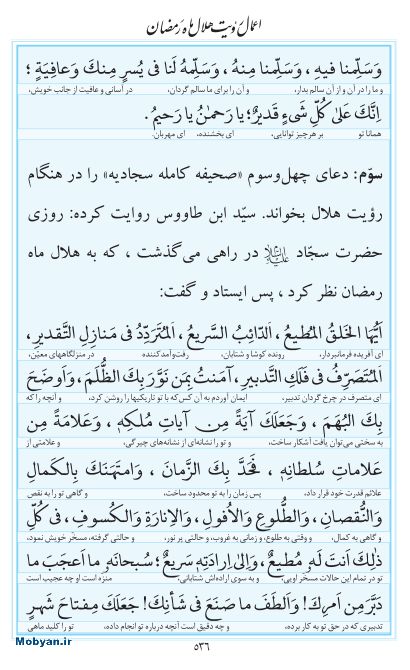 اعمال رؤیت هلال ماه رمضان
وَسَلِّمنا فیهِ ، وَسَلِّمنا مِنهُ ، وَسَلِّمهُ لَنا فی یُسرٍ مِنكَ وَعافِیَةٍ ؛
و ما را در آن و از آن سالم بدار، و آن را برای ما سالم گردان، در آسانی و عافیت از جانب خویش،
اِنَّكَ عَلیٰ كُلِّ شَیءٍ قَدیرٌ؛ یا رَحمٰنُ یا رَحیمُ.
همانا تو بر هرچیز توانایی، ای بخشنده، ای مهربان.
سوّم: دعای چهل‌وسوم «صحیفه کامله سجادیه» را در هنگام
رؤیت هلال بخواند. سیّد ابن طاووس روایت کرده: روزی
حضرت سجّاد علیه‌السلام در راهی می‌گذشت ، که به هلال ماه
رمضان نظر کرد ، پس ایستاد و گفت:
اَیُّهَا الخَلقُ المُطیعُ، الدّائِبُ السَّریعُ، المُتَرَدِّدُ فی مَنازِلِ التَّقدیرِ،
ای آفریده فرمانبردار، رونده کوشا و شتابان، رفت‌وآمدکننده در منزلگاههای معیّن،
المُتَصَرِّفُ فی فَلَكِ التَّدبیرِ ، آمَنتُ بِمَن نَوَّرَ بِكَ الظُّلَمَ ، وَاَوضَحَ
ای متصرف در چرخ گردان تدبیر، ایمان آوردم به آن کس‌که با تو تاریکیها را روشن کرد، و آنچه را که
بِكَ البُهَمَ ، وَجَعَلَكَ آیَةً مِن آیاتِ مُلكِهِ، وَعَلامَةً مِن
به سختی می‌توان یافت آشکار ساخت، و تو را نشانه‌ای از نشانه‌های چیرگی، و علامتی از
عَلاماتِ سُلطانِهِ ، فَحَدَّ بِكَ الزَّمانَ ، وَامتَهَنَكَ بِالكَمالِ
علائم قدرت خود قرار داد، پس زمان را به تو محدود ساخت، و گاهی تو را به نقص
وَالنُّقصانِ، وَالطُّلوعِ وَالاُفولِ، وَالاِنارَةِ وَالكُسوفِ، فی كُلِّ
و گاهی به کمال، و وقتی به طلوع، و زمانی به غروب، و حالتی پر نور، و حالتی گرفته، مسخّر خویش نمود،
ذٰلِكَ اَنتَ لَهُ مُطیعٌ، وَاِلیٰ اِرادَتِهِ سَریعٌ ؛ سُبحانَهُ ما اَعجَبَ ما
تو در تمام این حالات مسخّر اویی؛ و به سوی اراده‌اش شتابانی؛ منزه است او چه عجیب است
دَبَّرَ مِن اَمرِكَ! وَاَلطَفَ ما صَنَعَ فی شَأنِكَ! جَعَلَكَ مِفتاحَ شَهرٍ
تدبیری که در حق تو به کار برده، و چه دقیق است آنچه درباره تو انجام داده، تو را کلید ماهی
۵۳۶
Mobyan.ir